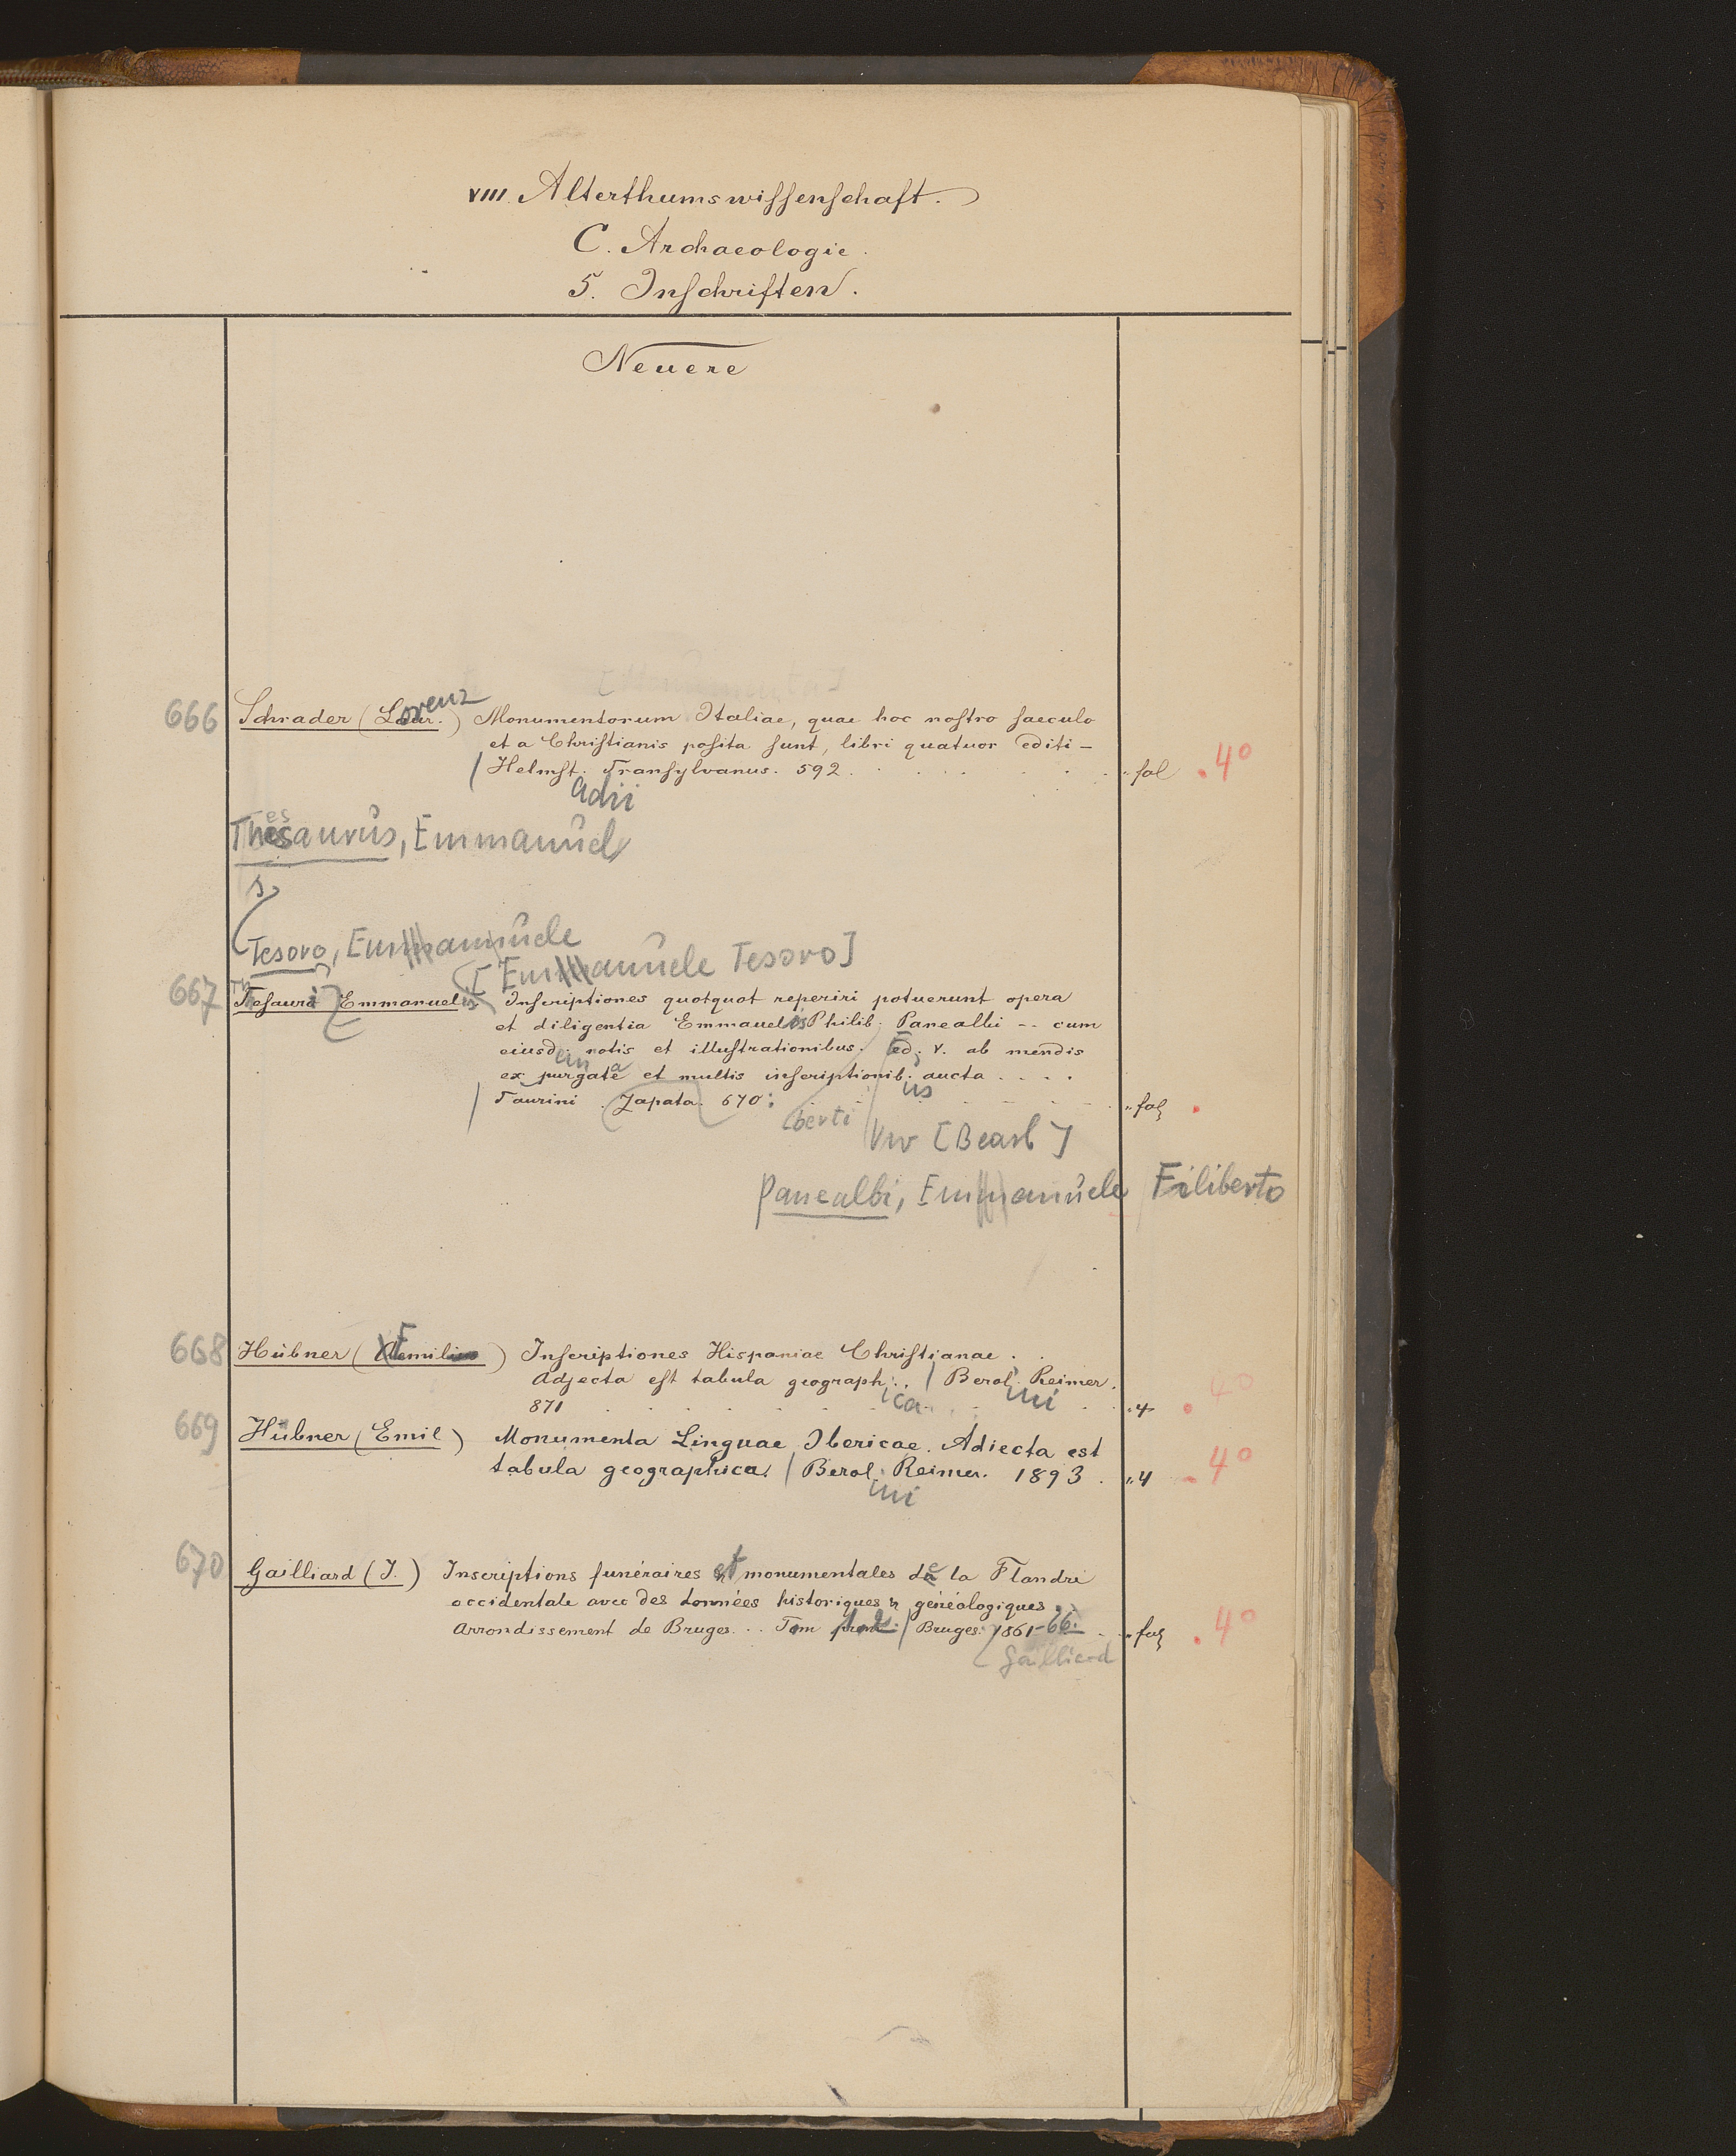 VIII. Alterthumswissenschaft.
C. Archaeologie.
5. Inschriften.
Neuere
666 Schrader (Lorenz) Monumentorum Italiae, quae hoc nostro saeculo
et a Christianis posita sunt, libri quatuor editi –
/ Helmst. Transylvanus. 592. fol 4°
adii
Thesaurus, Emmanuel
s.
Tesoro, Emmanuele
[Emmanuele Tesoro]
667 Thesauri Emmanuelis Inscriptiones quotquot reperiri potuerunt opera
et diligentia Emmanuelis Philib. Panealbi -- cum
eiusdem notis et illustrationibus. Ed. V. ab mendis
expurgata et multis inscriptionib. aucta . . . .
us
/ Taurini. Zapata. 670. fol
berti
[Bearb]
Panealbi, Emmanuele Filiberto
668 Hübner (Emil) Inscriptiones Hispaniae Christianae.
Adjecta est tabula geograph. / Berol. Reimer.
ica ini
871 4 4°
669 Hübner (Emil) Monumenta Linguae Ibericae. Adiecta est
tabula geographica. / Berol. Reimer. 1893. 4 4°
ini
670 Gailliard (J.) Inscriptions funéraires et monumentales de la Flandre
occidentale avec des données historiques & généalogiques.
Arrondissement de Bruges... Tom / Bruges. 1861-66. fol 4°
Gailliard